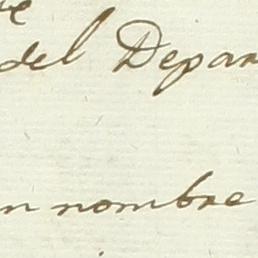 del Depar
n nombre